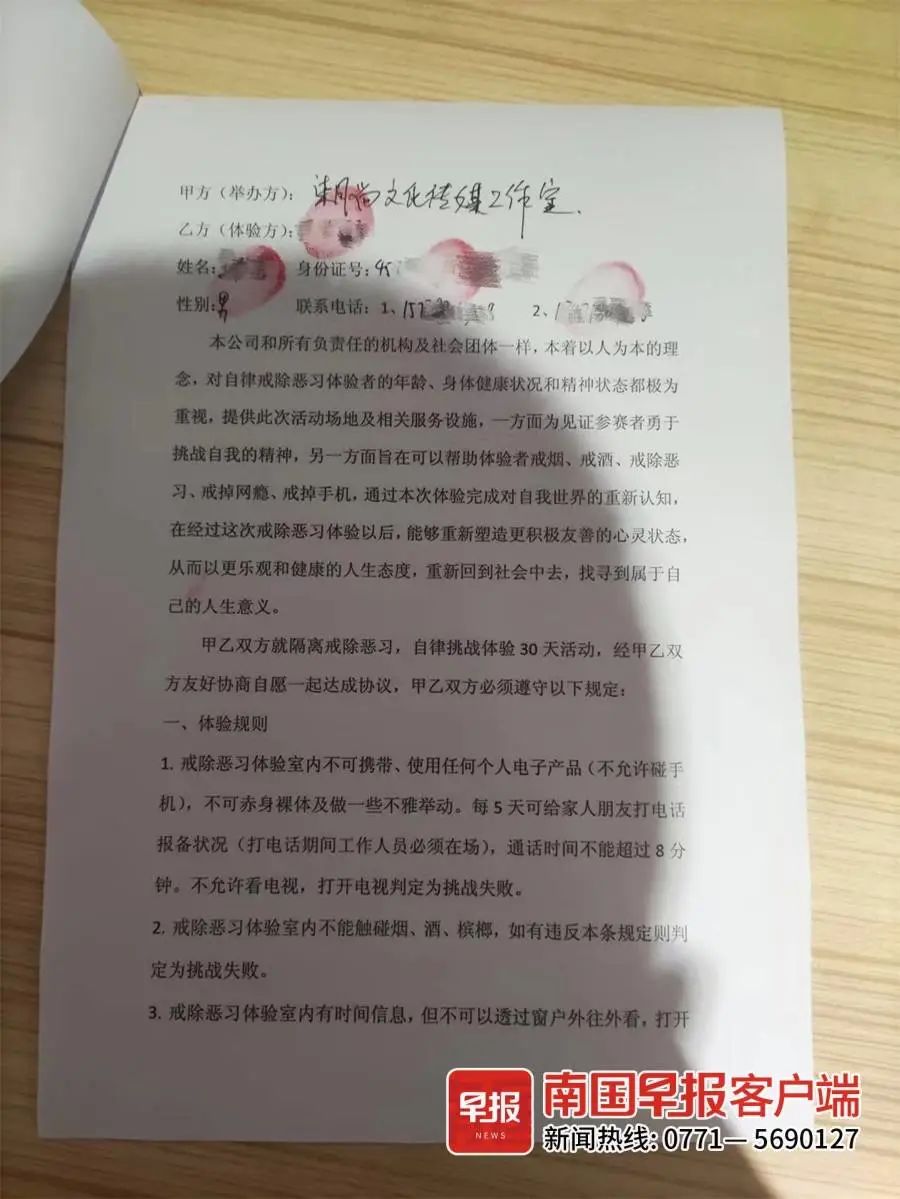 甲方（举办方）： 尚文化传媒工作室
乙方（体验方）:
姓名: 身份证号: 45
性别: 男 联系电话：1、157 8 2、1
本公司和所有负责任的机构及社会团体一样，本着以人为本的理
念，对自律戒除恶习体验者的年龄、身体健康状况和精神状态都极为
重视，提供此次活动场地及相关服务设施，一方面为见证参赛者勇于
挑战自我的精神，另一方面旨在可以帮助体验者戒烟、戒酒、戒除恶
习、戒掉网瘾、戒掉手机，通过本次体验完成对自我世界的重新认知，
在经过这次戒除恶习体验以后，能够重新塑造更积极友善的心灵状态，
从而以更乐观和健康的人生态度，重新回到社会中去，找寻到属于自
己的人生意义。
甲乙双方就隔离戒除恶习，自律挑战体验 30 天活动，经甲乙双
方友好协商自愿一起达成协议，甲乙双方必须遵守以下规定：
一、体验规则
1. 戒除恶习体验室内不可携带、使用任何个人电子产品（不允许碰手
机），不可赤身裸体及做一些不雅举动。每 5 天可给家人朋友打电话
报备状况（打电话期间工作人员必须在场），通话时间不能超过 8 分
钟。不允许看电视，打开电视判定为挑战失败。
2. 戒除恶习体验室内不能触碰烟、酒、槟榔，如有违反本条规定则判
定为挑战失败。
3. 戒除恶习体验室内有时间信息，但不可以透过窗户外往外看，打开
早报
NEWS
南国早报客户端
新闻热线: 0771— 5690127